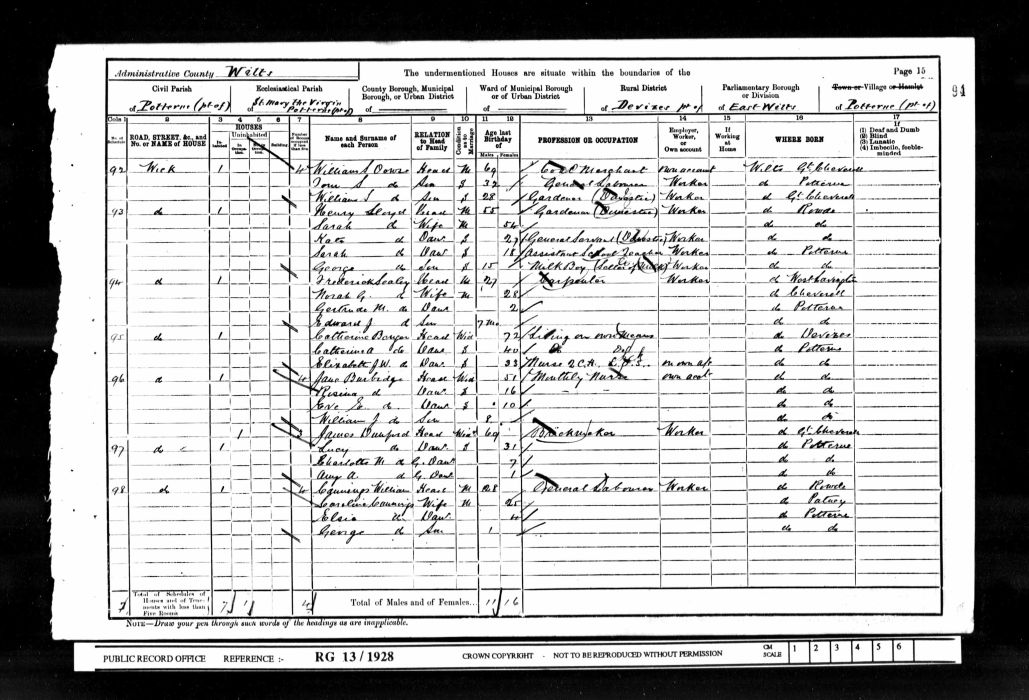 Administrative County Wilts
The undermentioned Houses are situate within the boundaries of the
Page 15
91
Civil Parish
of Potterne (pt of)
Ecclesiastical Parish
of St. Mary the Virgin Potterne (pt of)
County Borough, Municipal Borough, or Urban District
of
Ward of Municipal Borough or of Urban District
of
Rural District
of Devizes pt of
Parliamentary Borough or Division
of East Wilts
Town or Village or Hamlet
of Potterne (pt of)
Cols 1 2 3 4 5 6 7 8 9 10 11 12 13 14 15 16 17
No. of Schedule
ROAD, STREET, &c., and No. or NAME of HOUSE
HOUSES
Inhabited
Uninhabited
In Occupation
Not in Occupation
Building
Name and Surname of each Person
RELATION to Head of Family
Condition as to Marriage
Age last Birthday of
Males Females
PROFESSION OR OCCUPATION
Employer, Worker, or Own account
If Working at Home
WHERE BORN
If
(1) Deaf and Dumb
(2) Blind
(3) Lunatic
(4) Imbecile, feeble-minded
92 Wick 1 4 William S Head M 69 Coal Merchant own account Wilts Gt. Cheverell
Tom S do Son S 32 General Labourer Worker do Potterne
William S do Son S 28 Gardener (Domestic) Worker do Gt. Cheverell
93 do 1 Henry Lloyd Head M 55 Gardener (Domestic) Worker do Rowde
Sarah do Wife M 54 do do
Kate do Daur S 27 General Servant (Domestic) Worker do do
Sarah do Daur S 18 Assistant School Teacher Worker do Potterne
George do Son S 15 Milk Boy Worker do do
94 do 1 Frederick Sealey Head M 27 Carpenter Worker do West Lavington
Norah G. do Wife M 28 do Cheverell
Gertrude M. do Daur 2 do Potterne
Edward J do Son 7 Mo. do do
95 do 1 Catherine Head Wid 72 Living on own Means do Devizes
Catherine A do Daur S 40 Do do Potterne
Elizabeth J. W. do Daur S 33 Nurse on own a/c do do
96 do 1 4 Jane Burbidge Head Wid 51 Monthly Nurse own acct do do
Rosina do Daur S 16 do do
Eve E do Daur S 10 do do
William J do Son 8 do do
1
97 do 1 James Dunford Head Widr 69 Brickmaker Worker do Gt. Cheverell
Lucy do Daur S 31 do Potterne
Charlotte M do G. Daur 7 do do
Amy A. do G. Daur 1 do do
98 do 1 4 Cannings William Head M 28 General Labourer Worker do Rowde
Caroline Cannings Wife M 25 do Patney
Elsie do Daur 4 do Potterne
George do Son 1 do do
7 Total of Schedules of Houses and of Tenements with less than Five Rooms 7 1 4 Total of Males and of Females... 11 16
NOTE—Draw your pen through such words of the headings as are inapplicable.
PUBLIC RECORD OFFICE REFERENCE :- RG 13/1928 CROWN COPYRIGHT - NOT TO BE REPRODUCED WITHOUT PERMISSION CM SCALE 1 2 3 4 5 6